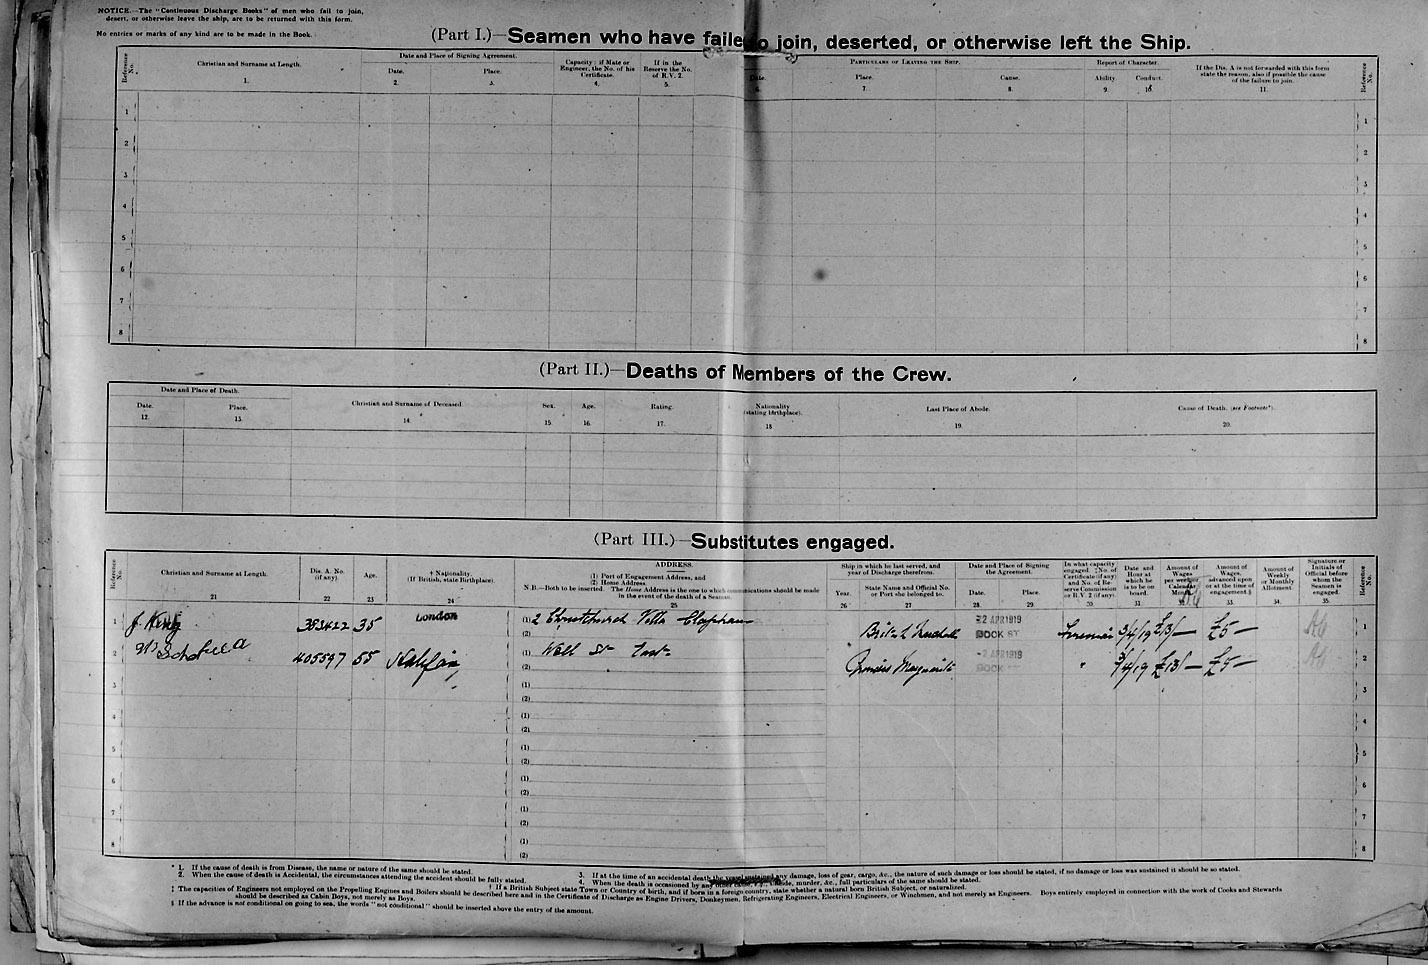 NOTICE.—The "Continuous Discharge Books" of men who fail to join,
desert, or otherwise leave the ship, are to be returned with this form.
No entries or marks of any kind are to be made in the Book.
(Part I.)—Seamen who have failed to join, deserted, or otherwise left the Ship.
Reference No. Christian and Surname at Length. Date and Place of Signing Agreement. Capacity: if Mate or Engineer, the No. of his Certificate. If in the Reserve the No. of R.V. 2. Particulars of Leaving the Ship. Report of Character. If the Dis. A is not forwarded with this form state the reason, also if possible the cause of the failure to join. Reference No.
Date. Place. Date. Place. Cause. Ability. Conduct.
1. 2. 3. 4. 5. 6. 7. 8. 9. 10. 11.
1 1
2 2
3 3
4 4
5 5
6 6
7 7
8 8
(Part II.)—Deaths of Members of the Crew.
Date and Place of Death. Christian and Surname of Deceased. Sex. Age. Rating. Nationality (stating birthplace). Last Place of Abode. Cause of Death. (see Footnote*).
Date. Place.
12. 13. 14. 15. 16. 17. 18 19. 20.
(Part III.)—Substitutes engaged.
Reference No. Christian and Surname at Length. Dis. A. No. (if any). Age. † Nationality. (If British, state Birthplace). ADDRESS. (1) Port of Engagement Address, and (2) Home Address. N.B.—Both to be inserted. The Home Address is the one to which communications should be made in the event of the death of a Seaman. Ship in which he last served, and year of Discharge therefrom. Date and Place of Signing the Agreement. In what capacity engaged. ‡ No. of Certificate (if any) and No. of Reserve Commission or R.V. 2 (if any). Date and Hour at which he is to be on board. Amount of Wages per week or Calendar Month. Amount of Wages, advanced upon or at the time of engagement.§ Amount of Weekly or Monthly Allotment. Signature or Initials of Official before whom the Seaman is engaged. Reference No.
Year. State Name and Official No. or Port she belonged to. Date. Place.
21 22 23 24 25 26 27 28 29. 30 31 32 33. 34. 35.
1 J. King 353422 35 London (1) 2 Christchurch Clapham 22 APR 1919 DOCK ST Fireman 3/4/19 £5— 1
(2)
2 405597 55 Halifax (1) Well St East 2 APR 1919 DOCK " 3/4/19 £5— 2
(2)
3 (1) 3
(2)
4 (1) 4
(2)
5 (1) 5
(2)
6 (1) 6
(2)
7 (1) 7
(2)
8 (1) 8
(2)
* 1. If the cause of death is from Disease, the name or nature of the same should be stated.
2. When the cause of death is Accidental, the circumstances attending the accident should be fully stated.
3. If at the time of an accidental death the vessel sustained any damage, loss of gear, cargo, &c., the nature of such damage or loss should be stated, if no damage or loss was sustained it should be so stated.
4. When the death is occasioned by any other cause, e.g., suicide, murder, &c., full particulars of the same should be stated.
† If a British Subject state Town or Country of birth, and if born in a foreign country, state whether a natural born British Subject, or naturalized.
‡ The capacities of Engineers not employed on the Propelling Engines and Boilers should be described here and in the Certificate of Discharge as Engine Drivers, Donkeymen, Refrigerating Engineers, Electrical Engineers, or Winchmen, and not merely as Engineers. Boys entirely employed in connection with the work of Cooks and Stewards
should be described as Cabin Boys, not merely as Boys.
§ If the advance is not conditional on going to sea, the words "not conditional" should be inserted above the entry of the amount.